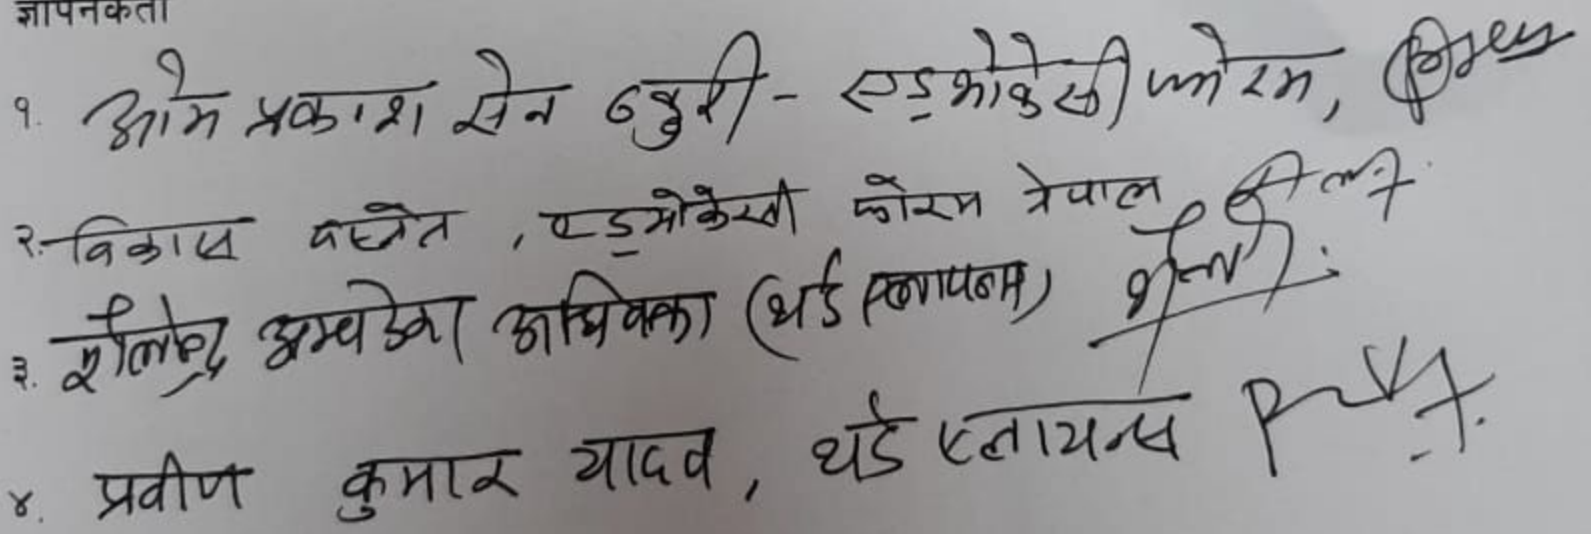 ज्ञापनकर्ता
१. ओम प्रकाश सेन ठकुरी - एड्भोकेसी फोरम,
२. विकास बस्नेत, एड्भोकेसी फोरम नेपाल
३. शैलेन्द्र अम्बेडकर अधिवक्ता (थर्ड एलायन्स)
४. प्रवीण कुमार यादव, थर्ड एलायन्स